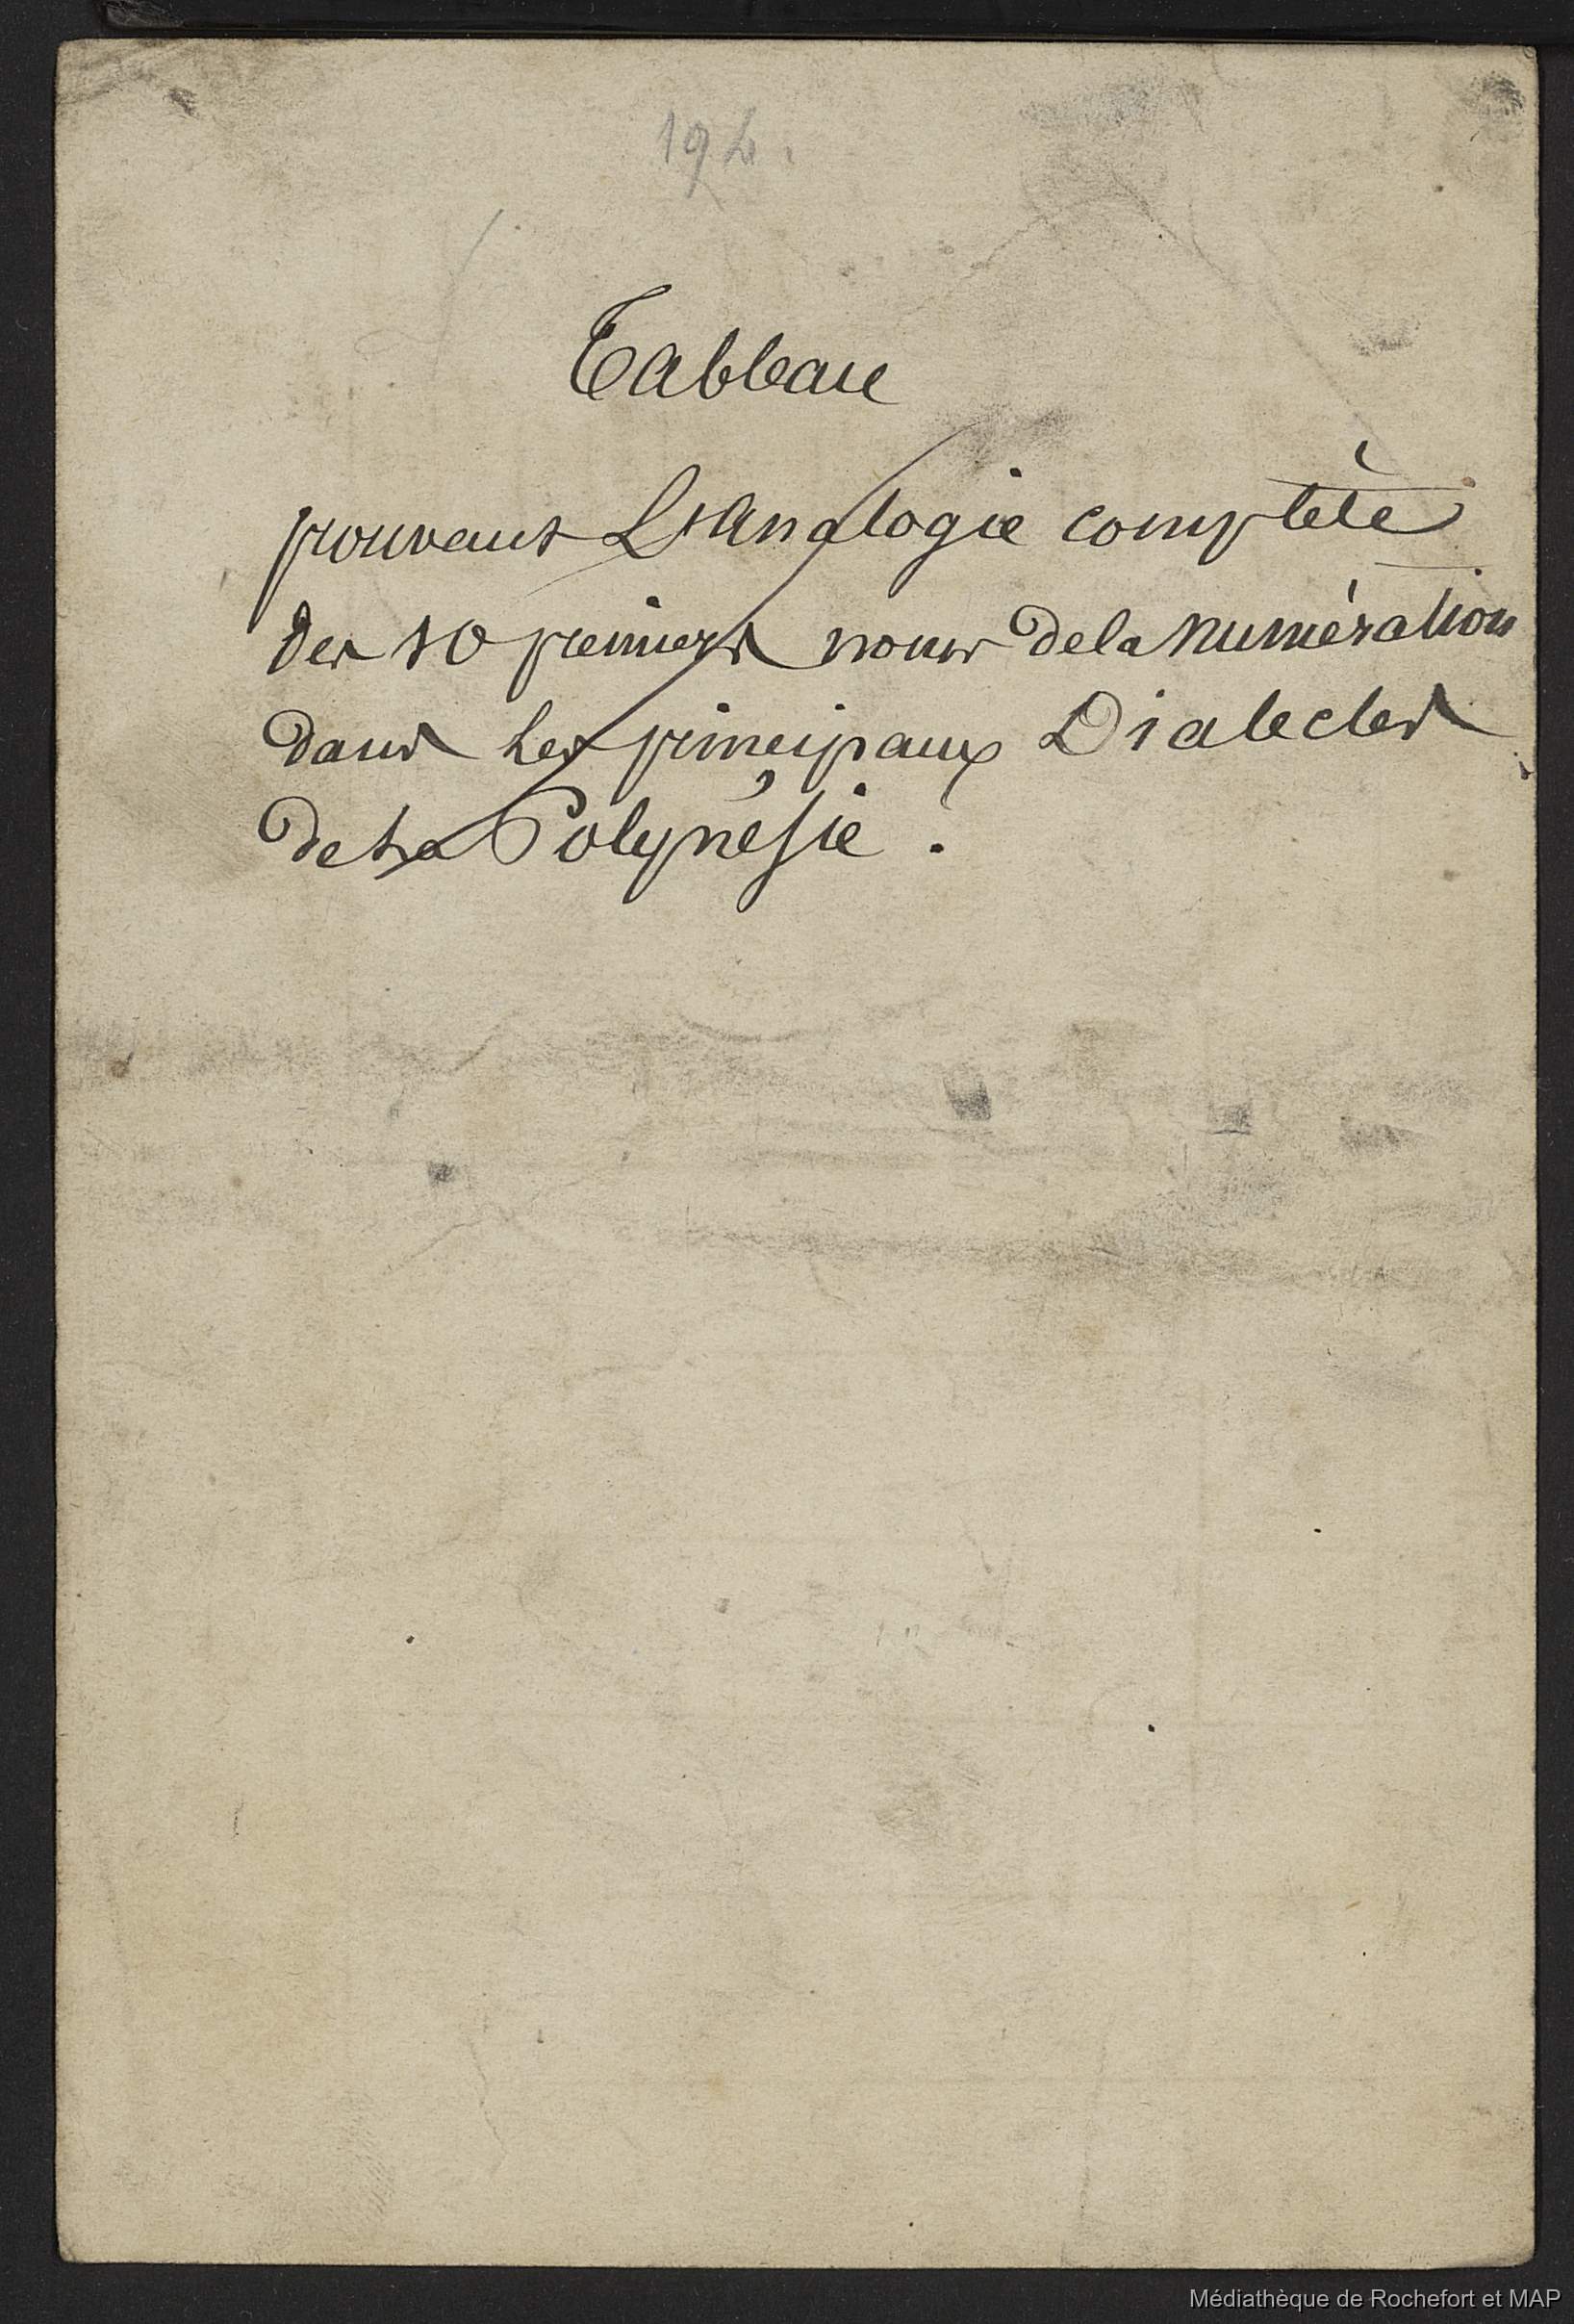 192.
Tableau
prouvant L'Analogie complète
des 10 premiers noms de la numération
dans les principaux Dialectes
de la Polynésie.
Médiathèque de Rochefort et MAP